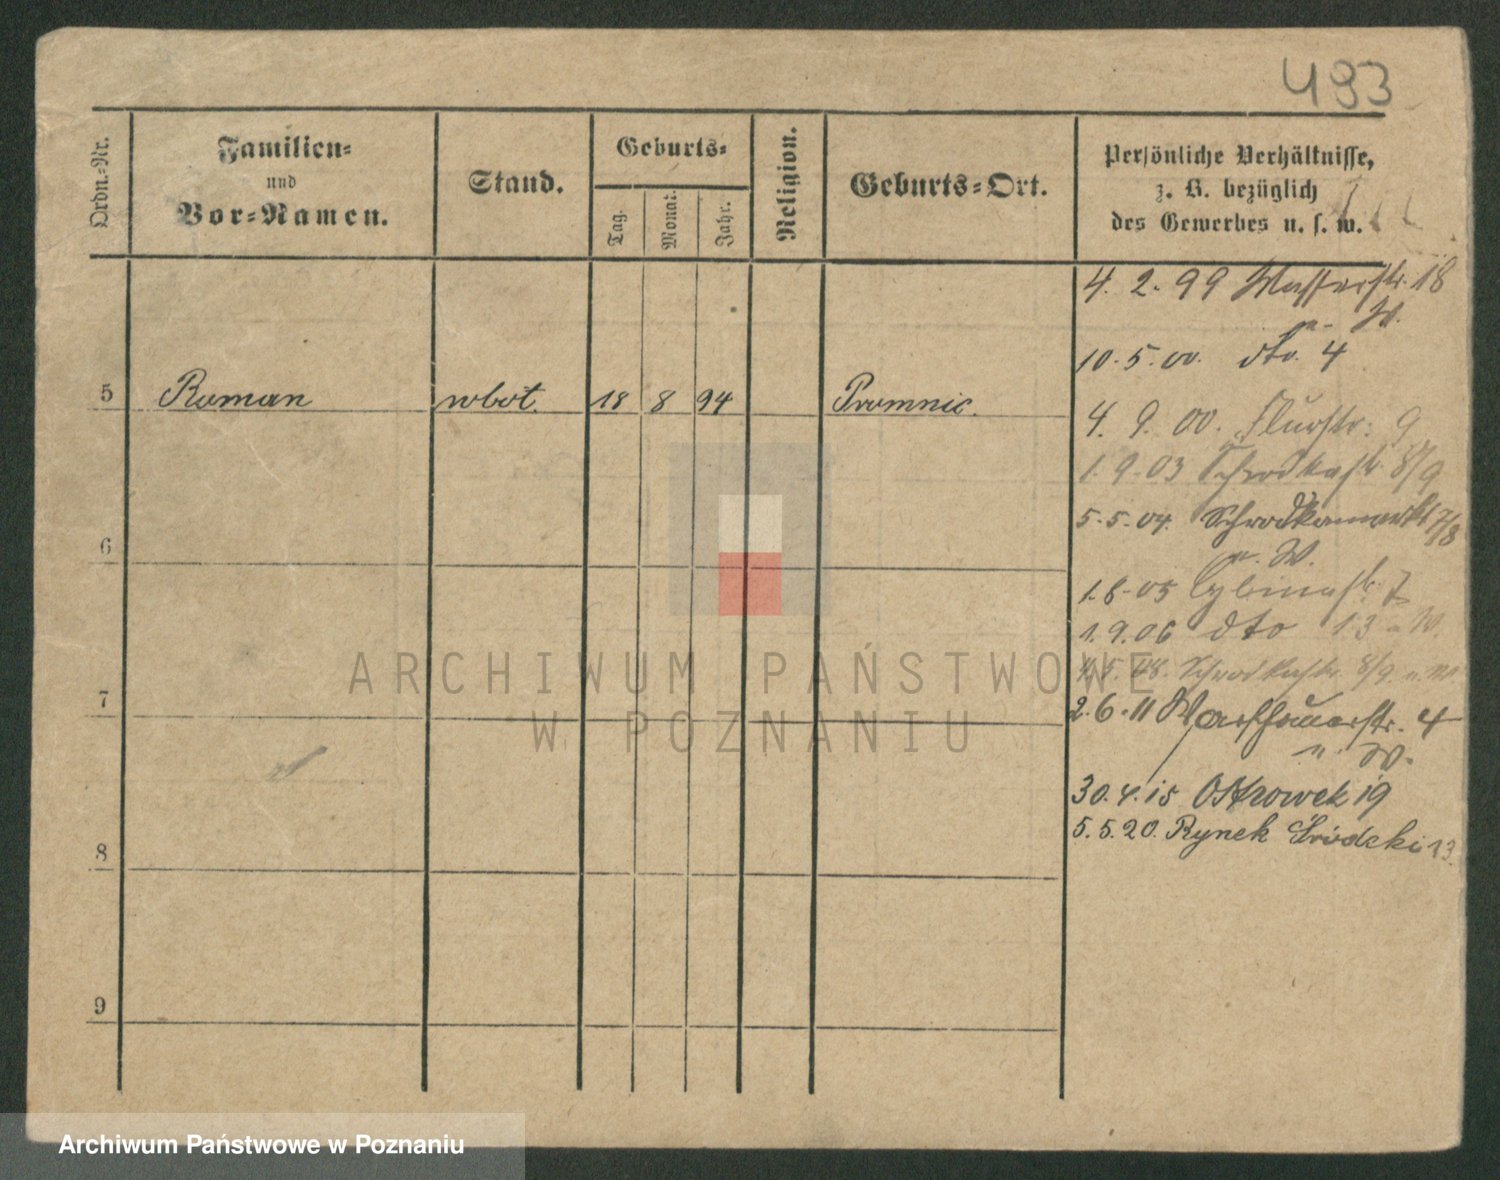 493
Ordn.-Nr.
Familien-
und
Vor-Namen.
Stand.
Geburts-
Tag.
Monat.
Jahr.
Religion.
Geburts-Ort.
Persönliche Verhältnisse,
z. B. bezüglich
des Gewerbes u. s. w.
4. 2. 99 Wasserstr. 18
u. W.
10. 5. 00. dto. 4
5 Roman 18 8 94 Promnic.
4. 9. 00. Flurstr. 9
1. 9. 03 Schrodkastr. 8/9
5. 5. 04. Schrodkamarkt 7/8
u. W.
6
1. 6. 05 Cybinastr. 7
1. 9. 06 dto 13 u. W.
Schrodkastr. 8/9 u. W.
7
2. 6. 11 Warschauerstr. 4
u. W.
30. 4. 15 Ostrowek 19
5. 5. 20. Rynek Śródcki 13.
8
9
ARCHIWUM PAŃSTWOWE
W POZNANIU
Archiwum Państwowe w Poznaniu